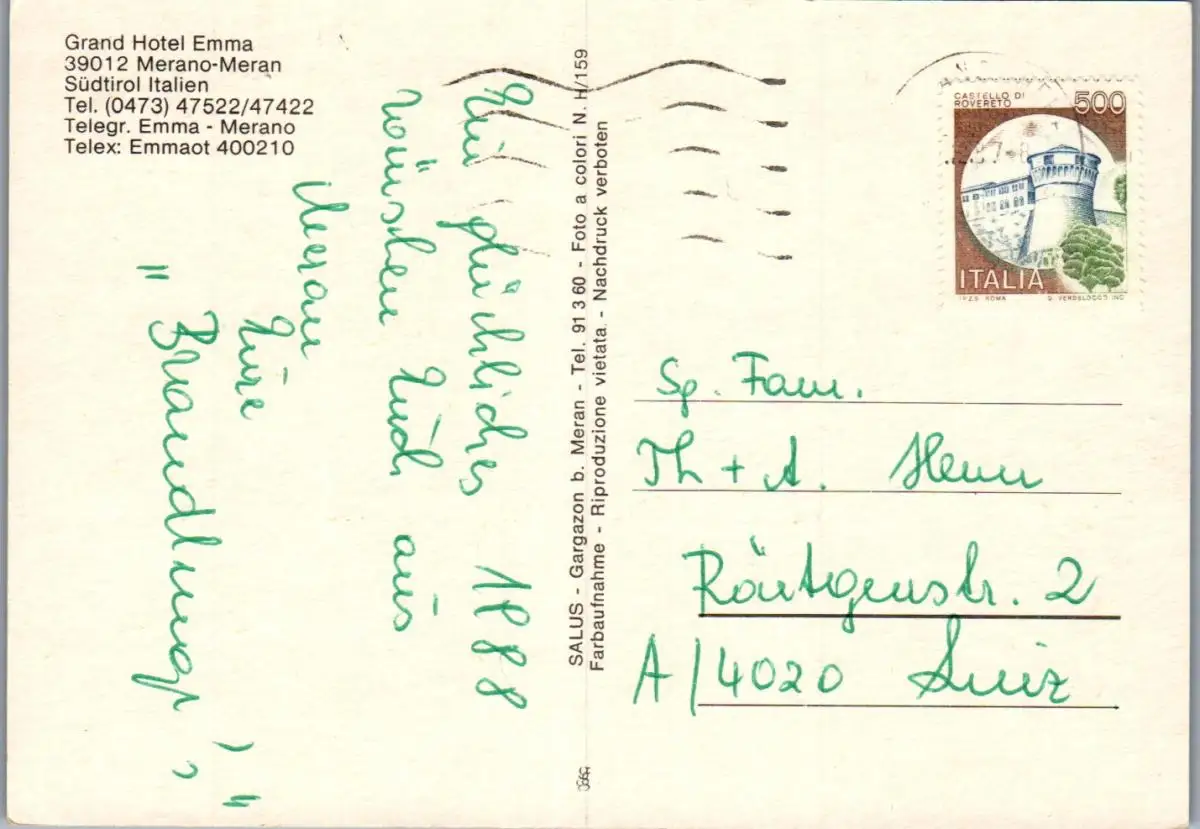 Grand Hotel Emma
39012 Merano-Meran
Südtirol Italien
Tel. (0473) 47522/47422
Telegr. Emma - Merano
Telex: Emmaot 400210
Ein glückliches 1988
wünschen Euch aus
Meran
Eure
SALUS - Gargazon b. Meran - Tel. 91 3 60 - Foto a colori N. H/159
Farbaufnahme - Riproduzione vietata. - Nachdruck verboten
CASTELLO DI
ROVERETO
500
ITALIA
I.P.Z.S. ROMA
Sp. Fam.
Th + A. Henn
Röntgenstr. 2
A/4020 Linz